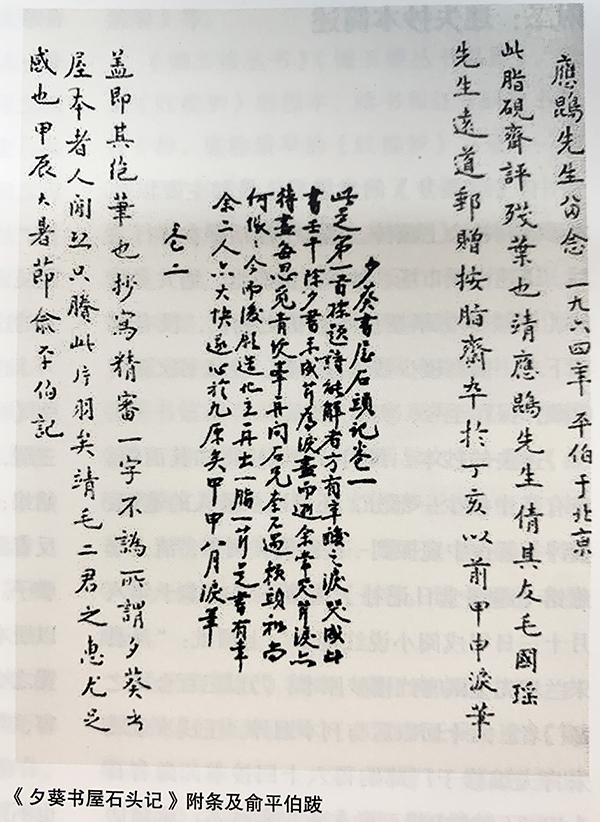 應鵾先生留念 一九六四年 平伯于北京
此脂硯齋評殘葉也靖應鵾先生倩其友毛國瑤
先生遠道郵贈按脂齋卒於丁亥以前甲申淚筆
夕葵書屋石頭記卷一
此是第一首標題詩能解者方有辛酸之淚哭成此
書壬午除夕書未成芹為淚盡而逝余常哭芹淚亦
待盡每思覓青埂峯再問石兄奈不遇癩頭和尚
何悵今而後願造化主再出一脂一芹是書有幸
余二人亦大快遂心於九原矣甲申八月淚筆
卷二
蓋即其絕筆也抄寫精審一字不譌所謂夕葵書
屋本者人間恐只賸此片羽矣靖毛二君之惠尤足
感也甲辰大暑節俞平伯記
《夕葵书屋石头记》附条及俞平伯跋